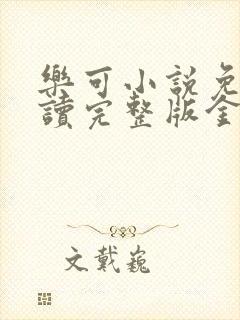 樂可小說免
讀完整版全
文戴巍